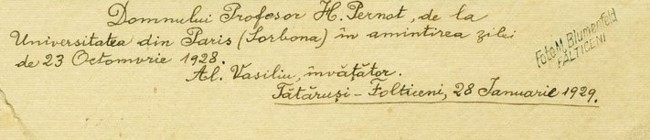 Domnului Profesor H. Pernot, de la
Universitatea din Paris (Sorbona) în amintirea zilei
de 23 Octomvrie 1928.
Al. Vasiliu, învățător.
Tătăruși - Folticeni, 28 Ianuarie 1929.
Foto M. Blumenfeld
FĂLTICENI